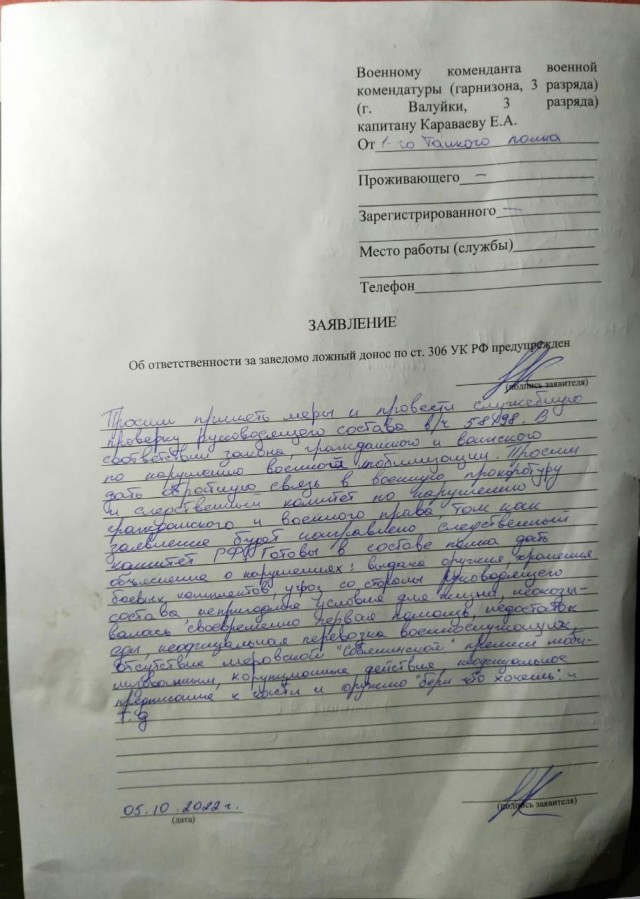 Военному коменданта военной
комендатуры (гарнизона, 3 разряда)
(г. Валуйки, 3 разряда)
капитану Караваеву Е.А.
От 1-го Танкого полка
Проживающего –
Зарегистрированного –
Место работы (службы)
Телефон
ЗАЯВЛЕНИЕ
Об ответственности за заведомо ложный донос по ст. 306 УК РФ предупрежден
(подпись заявителя)
Просим принять меры и провести служебную
проверку руководящего состава в/ч 58198. В
соответствии закона, гражданского и воинского
по нарушению военной мобилизации. Просим
дать обратную связь в военную прокуратуру
и следственный комитет по нарушению
гражданского и военного права. Так как
заявление будет направлено следственный
комитет РФ. Готовы в составе полка дать
объяснение о нарушениях: выдача оружия, хранения
боевых комплентов, угроз со стороны руководящего
состава, непригодные условия для жизни, неоказы-
валась своевременно первая помощь, недостаток
еды, неофициальная перевозка военнослужащих,
отсутствие меровской "Собянинской" премии моби-
лизованным, корупционные действия, неофициальное
предписание к части и оружию "бери что хочешь" и
т.д
05.10.2022г.
(дата)
(подпись заявителя)